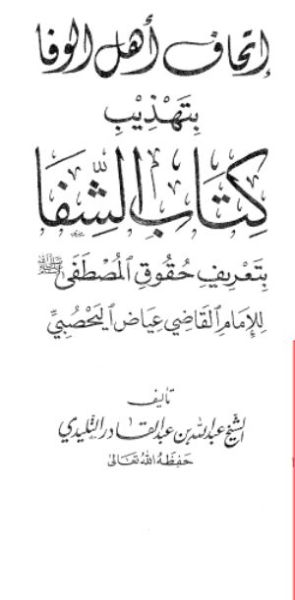 إتحاف أهل الوفا
بتهذيب
كِتَابُ الشِّفَا
بِتَعْرِيفِ حُقُوقِ الْمُصْطَفَى ﷺ
لِلإِمَامِ القَاضِي عِيَاضِ اليَحْصُبِيِّ
تأليف
الشيخ عبد الله بن عبد القادر التليدي
حَفِظَهُ اللهُ تَعَالَى